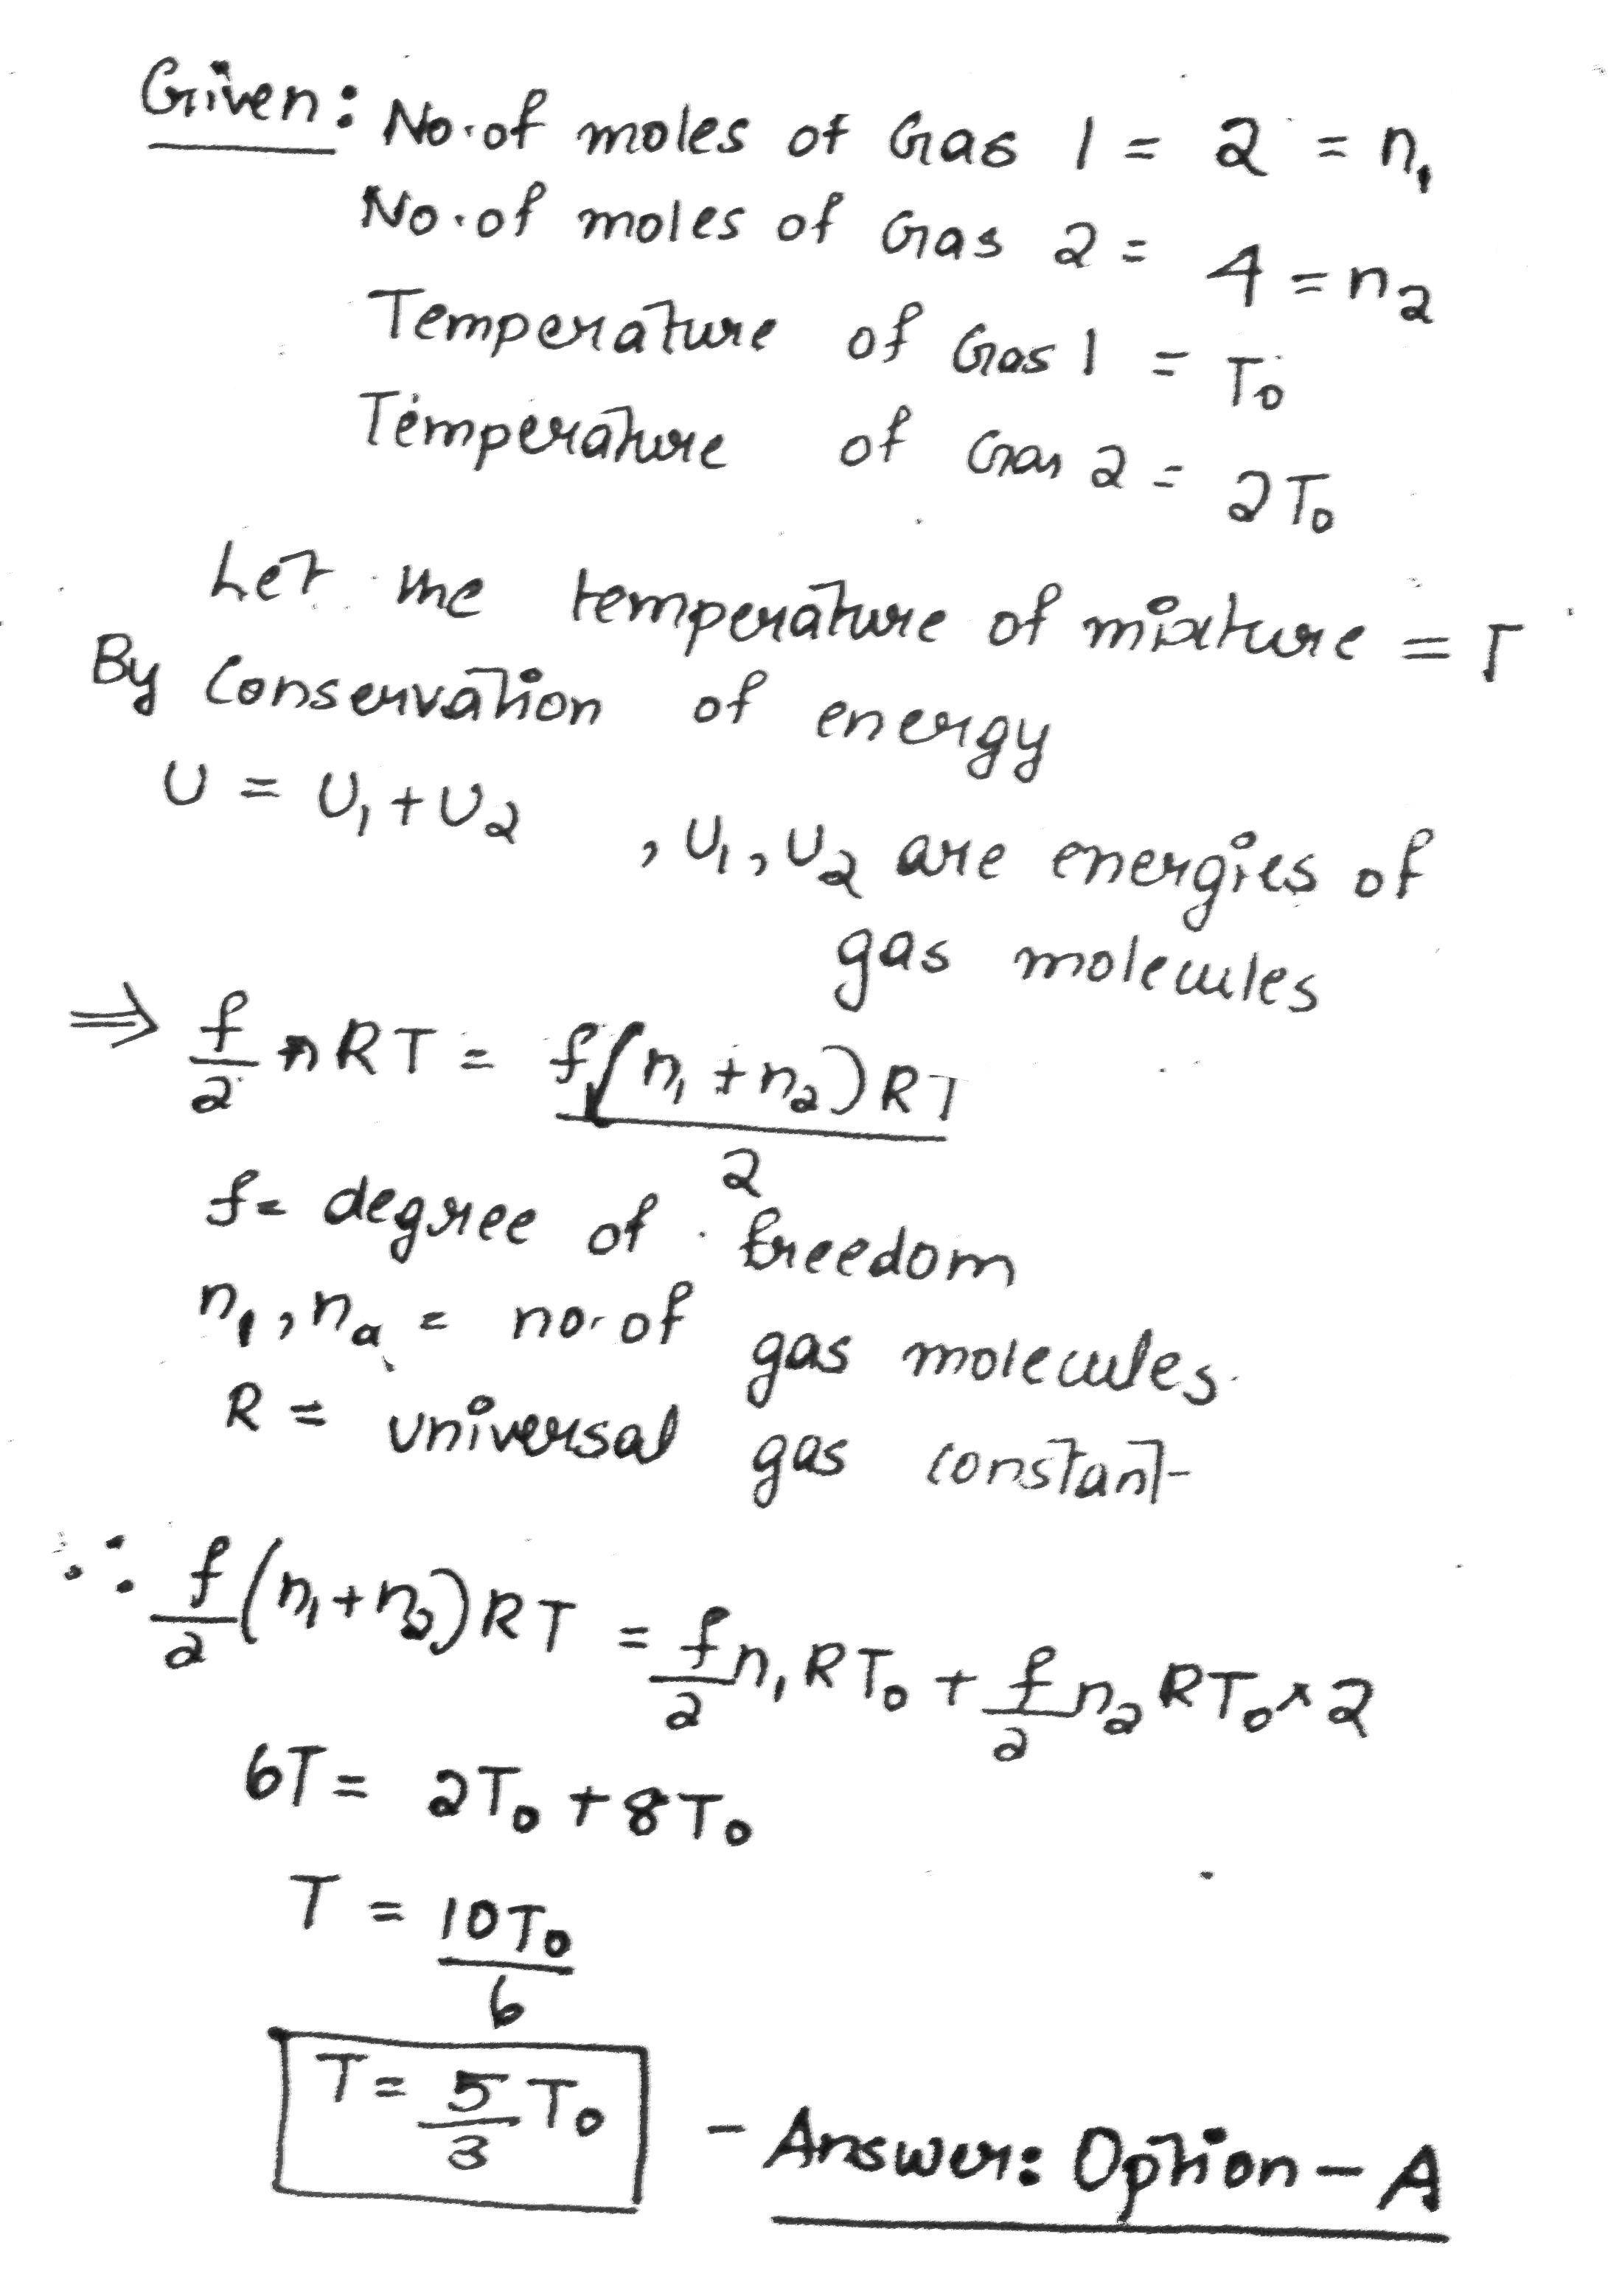 Given: No. of moles of Gas 1 = 2 = n₁
No. of moles of Gas 2 = 4 = n₂
Temperature of Gas 1 = T₀
Temperature of Gas 2 = 2T₀
Let the temperature of mixture = T
By conservation of energy
U = U₁ + U₂ , U₁, U₂ are energies of
gas molecules
⇒ f/2 nRT = f(n₁ + n₂)RT/2
f = degree of freedom
n₁, n₂ = no. of gas molecules.
R = universal gas constant
∴ f/2 (n₁+n₂)RT = f/2 n₁RT₀ + f/2 n₂RT₀ × 2
6T = 2T₀ + 8T₀
T = 10T₀/6
T = 5/3 T₀ - Answer: Option - A